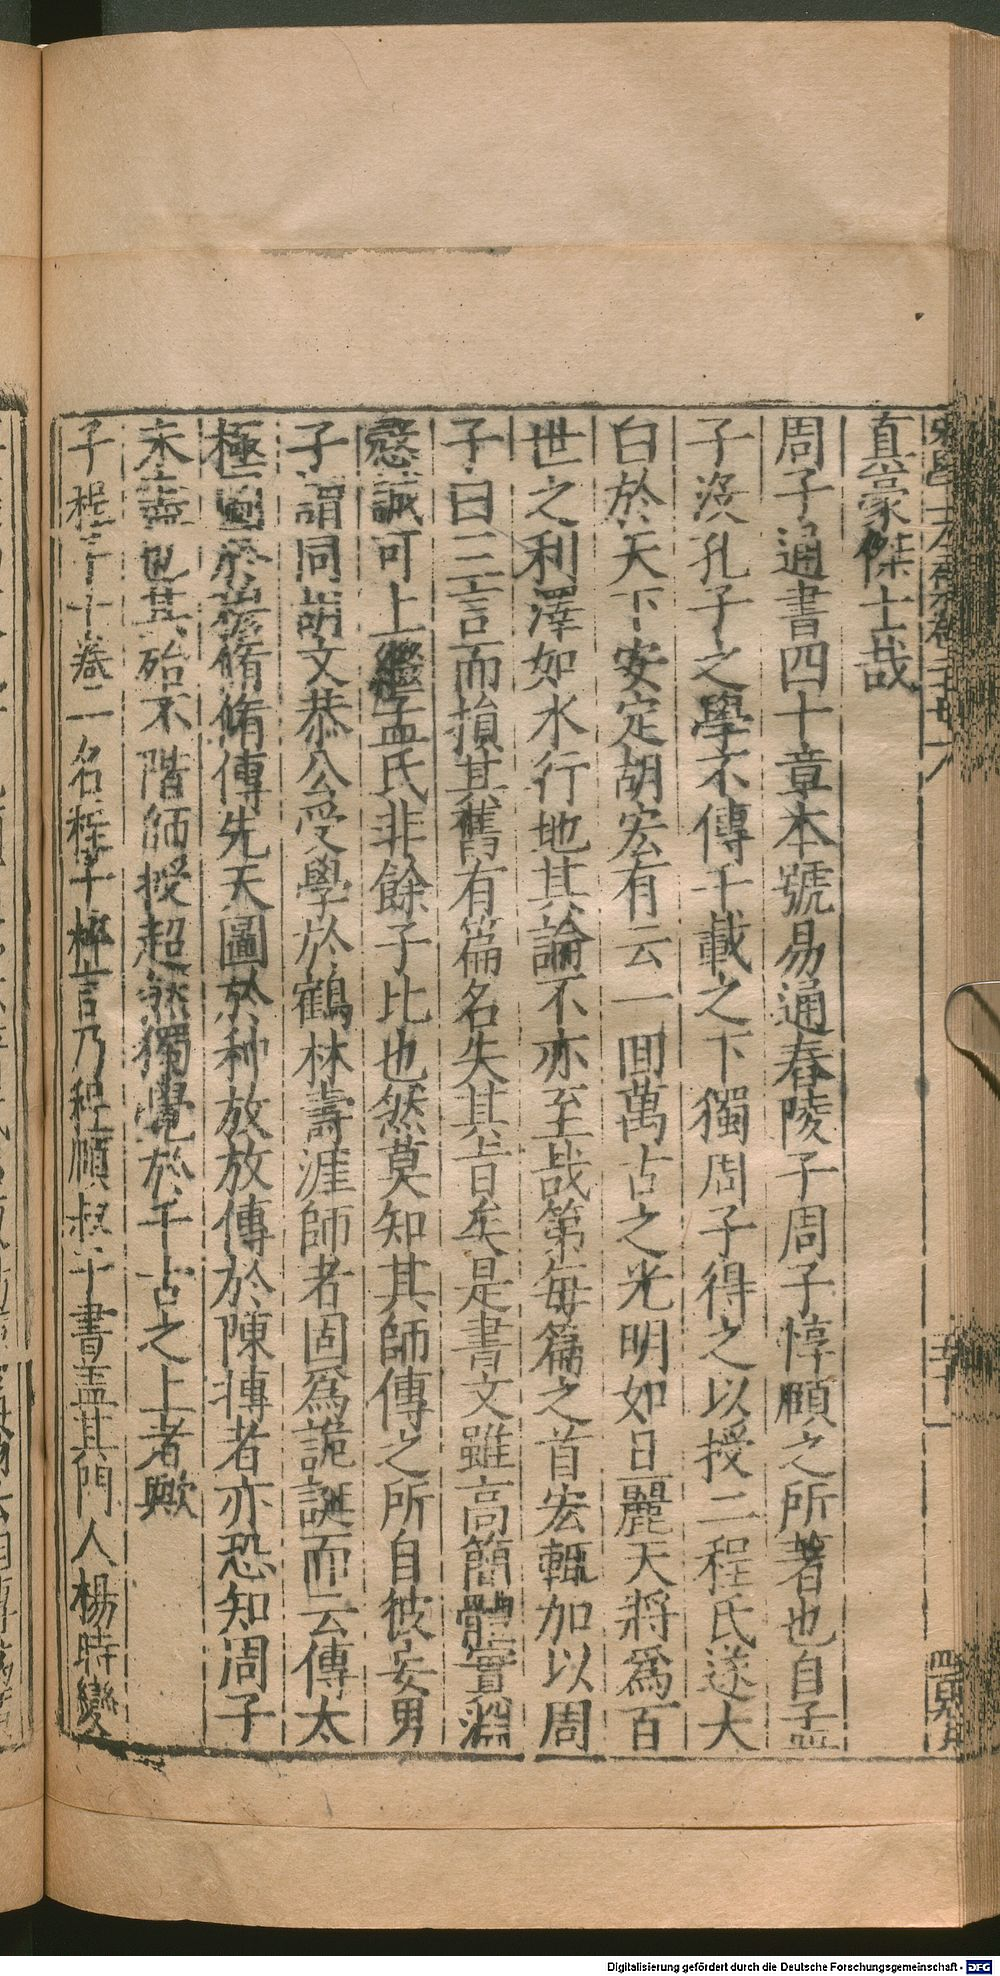 真豪傑士哉
周子通書四十章本號易通舂陵子周子惇頤之所著也自孟
子沒孔子之學不傳千載之下獨周子得之以授二程氏遂大
白於天下安定胡宏有云一回萬古之光明如日麗天將爲百
世之利澤如水行地其論不亦至哉第每篇之首宏輒加以周
子曰三言而損其舊有篇名失其旨矣是書文雖高簡體實淵
愨誠可上繼孟氏非餘子比也然莫知其師傳之所自彼妄男
子謂同胡文恭公受學於鶴林壽涯師者固爲詭誕而云傳太
極圖於穆脩脩傳先天圖於种放放傳於陳摶者亦恐知周子
未盡也其殆不階師授超然獨覺於千古之上者歟
子程子十卷一名程子粹言乃程頤叔子書盖其門人楊時變
Digitalisierung gefördert durch die Deutsche Forschungsgemeinschaft - DFG